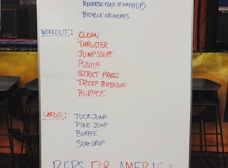 REVERSE FLYS
BICYCLE CRUNCHES
WORKOUT:
CLEAN
THRUSTER
JUMP SQUAT
PUSHUP
STRICT PRESS
TRICEP EXTENSION
BURPEE
TUCK JUMP
PIKE JUMP
BURPEE
SEAT DROP
REPS FOR AMERICA